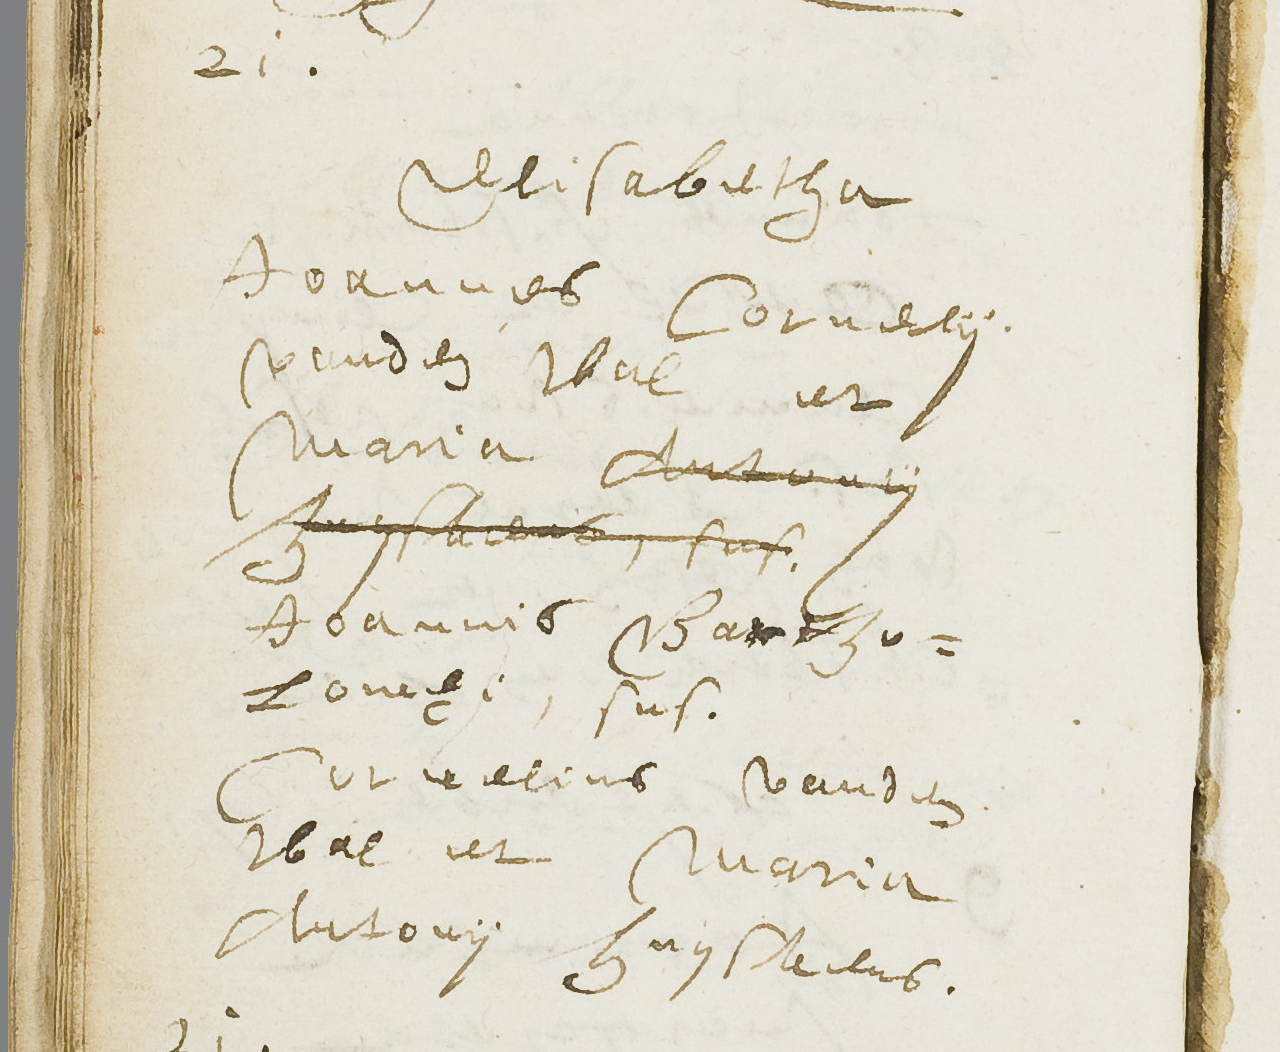 21.
Elisabetha
Joannes Cornelij.
vanden Wal et
Maria Antonij
Huijskens, sus.
Joannis Bartho=
lomei, sus.
Cornelius vanden
Wal et Maria
Antonij Huijskens.
21.